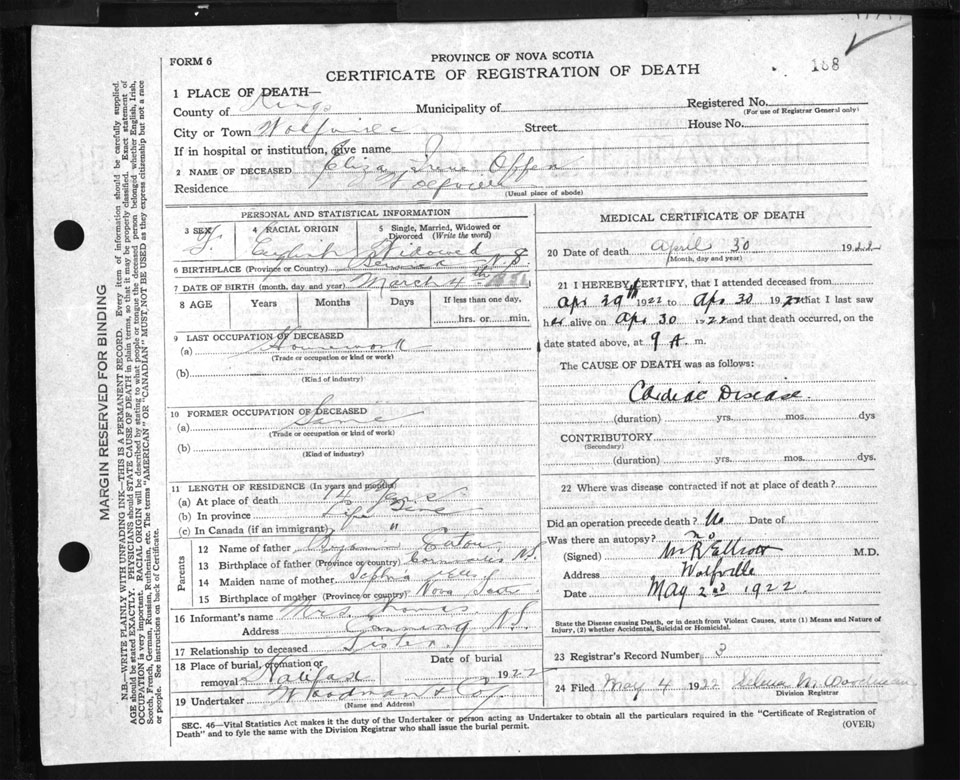 168
PROVINCE OF NOVA SCOTIA
FORM 6
CERTIFICATE OF REGISTRATION OF DEATH
1 PLACE OF DEATH—
County of Kings Municipality of
Registered No.
(For use of Registrar General only)
City or Town Wolfville Street House No.
If in hospital or institution, give name
2 NAME OF DECEASED Eliza Irene Offen
Residence Wolfville
(Usual place of abode)
PERSONAL AND STATISTICAL INFORMATION
3 SEX 4 RACIAL ORIGIN 5 Single, Married, Widowed or Divorced (Write the word)
F. English Widowed
6 BIRTHPLACE (Province or Country) N. S.
7 DATE OF BIRTH (month, day and year) March 4th
8 AGE Years Months Days If less than one day,
hrs. or min.
9 LAST OCCUPATION OF DECEASED
(a) Housework
(Trade or occupation or kind or work)
(b)
(Kind of industry)
10 FORMER OCCUPATION OF DECEASED
(a) Same
(Trade or occupation or kind of work)
(b)
(Kind of industry)
11 LENGTH OF RESIDENCE (In years and months)
(a) At place of death 14
(b) In province Life Time
(c) In Canada (if an immigrant) "
Parents
12 Name of father Eaton
13 Birthplace of father (Province or country) Cornwallis N.S.
14 Maiden name of mother Sophia
15 Birthplace of mother (Province or country) Nova Scotia
16 Informant's name Mrs
Address Canning N.S.
17 Relationship to deceased Sister
18 Place of burial, cremation or removal Halifax Date of burial 1922
19 Undertaker Woodman & Co.
(Name and Address)
MEDICAL CERTIFICATE OF DEATH
20 Date of death April 30 1922
(Month, day and year)
21 I HEREBY CERTIFY, that I attended deceased from
Apr 29th 1922 to Apr 30 1922 that I last saw
her alive on Apr 30 1922 and that death occurred, on the
date stated above, at 9 A. m.
The CAUSE OF DEATH was as follows:
Cardiac Disease.
(duration) yrs. mos. dys
CONTRIBUTORY
(Secondary)
(duration) yrs. mos. dys.
22 Where was disease contracted if not at place of death?
Did an operation precede death? No Date of
Was there an autopsy? no
(Signed) M R Elliott M.D.
Address Wolfville
Date May 2nd 1922
State the Disease causing Death, or in death from Violent Causes, state (1) Means and Nature of Injury, (2) whether Accidental, Suicidal or Homicidal.
23 Registrar's Record Number 3
24 Filed May 4 1922 Selena M. Woodman
Division Registrar
SEC. 46—Vital Statistics Act makes it the duty of the Undertaker or person acting as Undertaker to obtain all the particulars required in the "Certificate of Registration of
Death" and to fyle the same with the Division Registrar who shall issue the burial permit. (OVER)
MARGIN RESERVED FOR BINDING
N.B.—WRITE PLAINLY WITH UNFADING INK—THIS IS A PERMANENT RECORD. Every item of information should be carefully supplied.
AGE should be stated EXACTLY. PHYSICIANS should STATE CAUSE OF DEATH in plain terms, so that it may be properly classified. Exact statement of
OCCUPATION is very important. RACIAL ORIGIN will be described by stating to what people or tongue the deceased person belonged whether English, Irish,
Scotch, French, German, Russian, Ruthenian, etc. The terms "AMERICAN" OR "CANADIAN" MUST NOT BE USED as they express citizenship but not a race
or people. See instructions on back of Certificate.